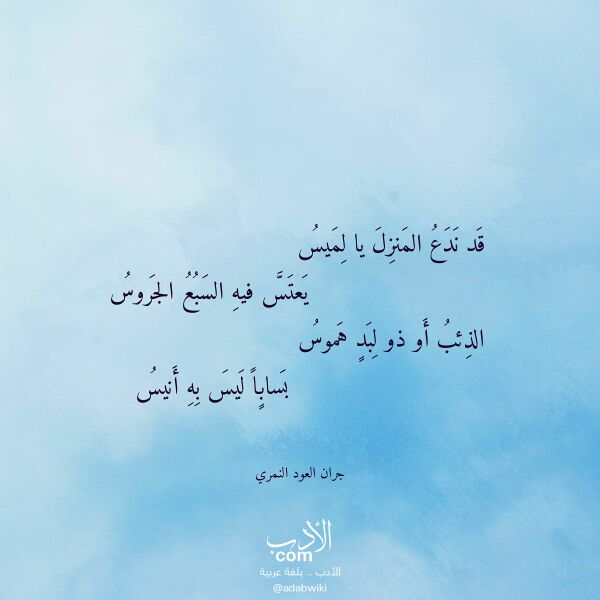 قَد نَدَعُ المَنزِلَ يا لِمَيسُ
يَعتَسَّ فيهِ السَبُعُ الجَروسُ
الذِئبُ أَو ذو لِبَدٍ هَموسُ
بَساباً لَيسَ بِهِ أَنيسُ
جران العود النمري
الأدب
com
الأدب .. بلغة عربية
@adabwiki